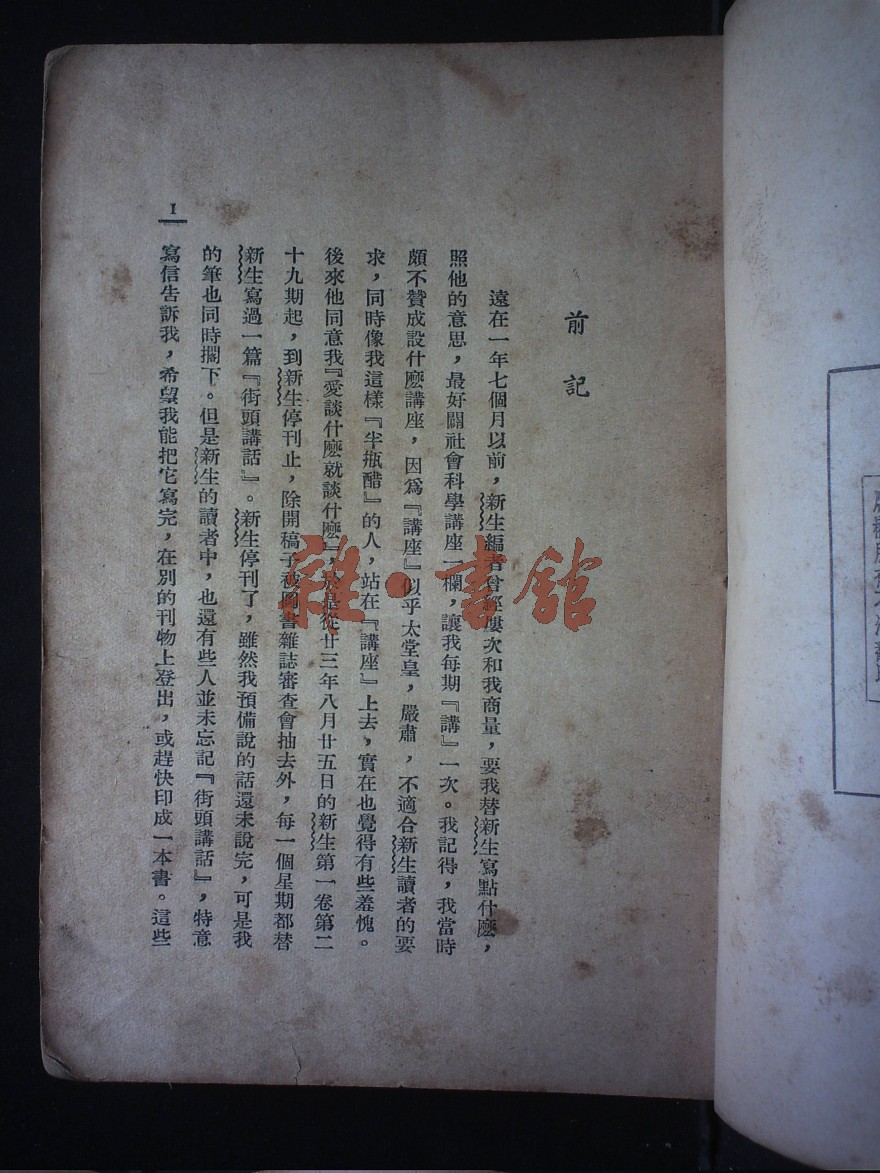 前記
遠在一年七個月以前，新生編者曾經屢次和我商量，要我替新生寫點什麽，
照他的意思，最好闢社會科學講座一欄，讓我每期『講』一次。我記得，我當時
頗不贊成設什麽講座，因爲『講座』似乎太堂皇，嚴肅，不適合新生讀者的要
求，同時像我這樣『半瓶醋』的人，站在『講座』上去，實在也覺得有些羞愧。
後來他同意我『愛談什麽就談什麽』，於是從廿三年八月廿五日的新生第一卷第二
十九期起，到新生停刊止，除開稿子被圖書雜誌審查會抽去外，每一個星期都替
新生寫過一篇『街頭講話』。新生停刊了，雖然我預備說的話還未說完，可是我
的筆也同時擱下。但是新生的讀者中，也還有些人並未忘記『街頭講話』，特意
寫信告訴我，希望我能把它寫完，在別的刊物上登出，或趕快印成一本書。這些
1
雜·書館